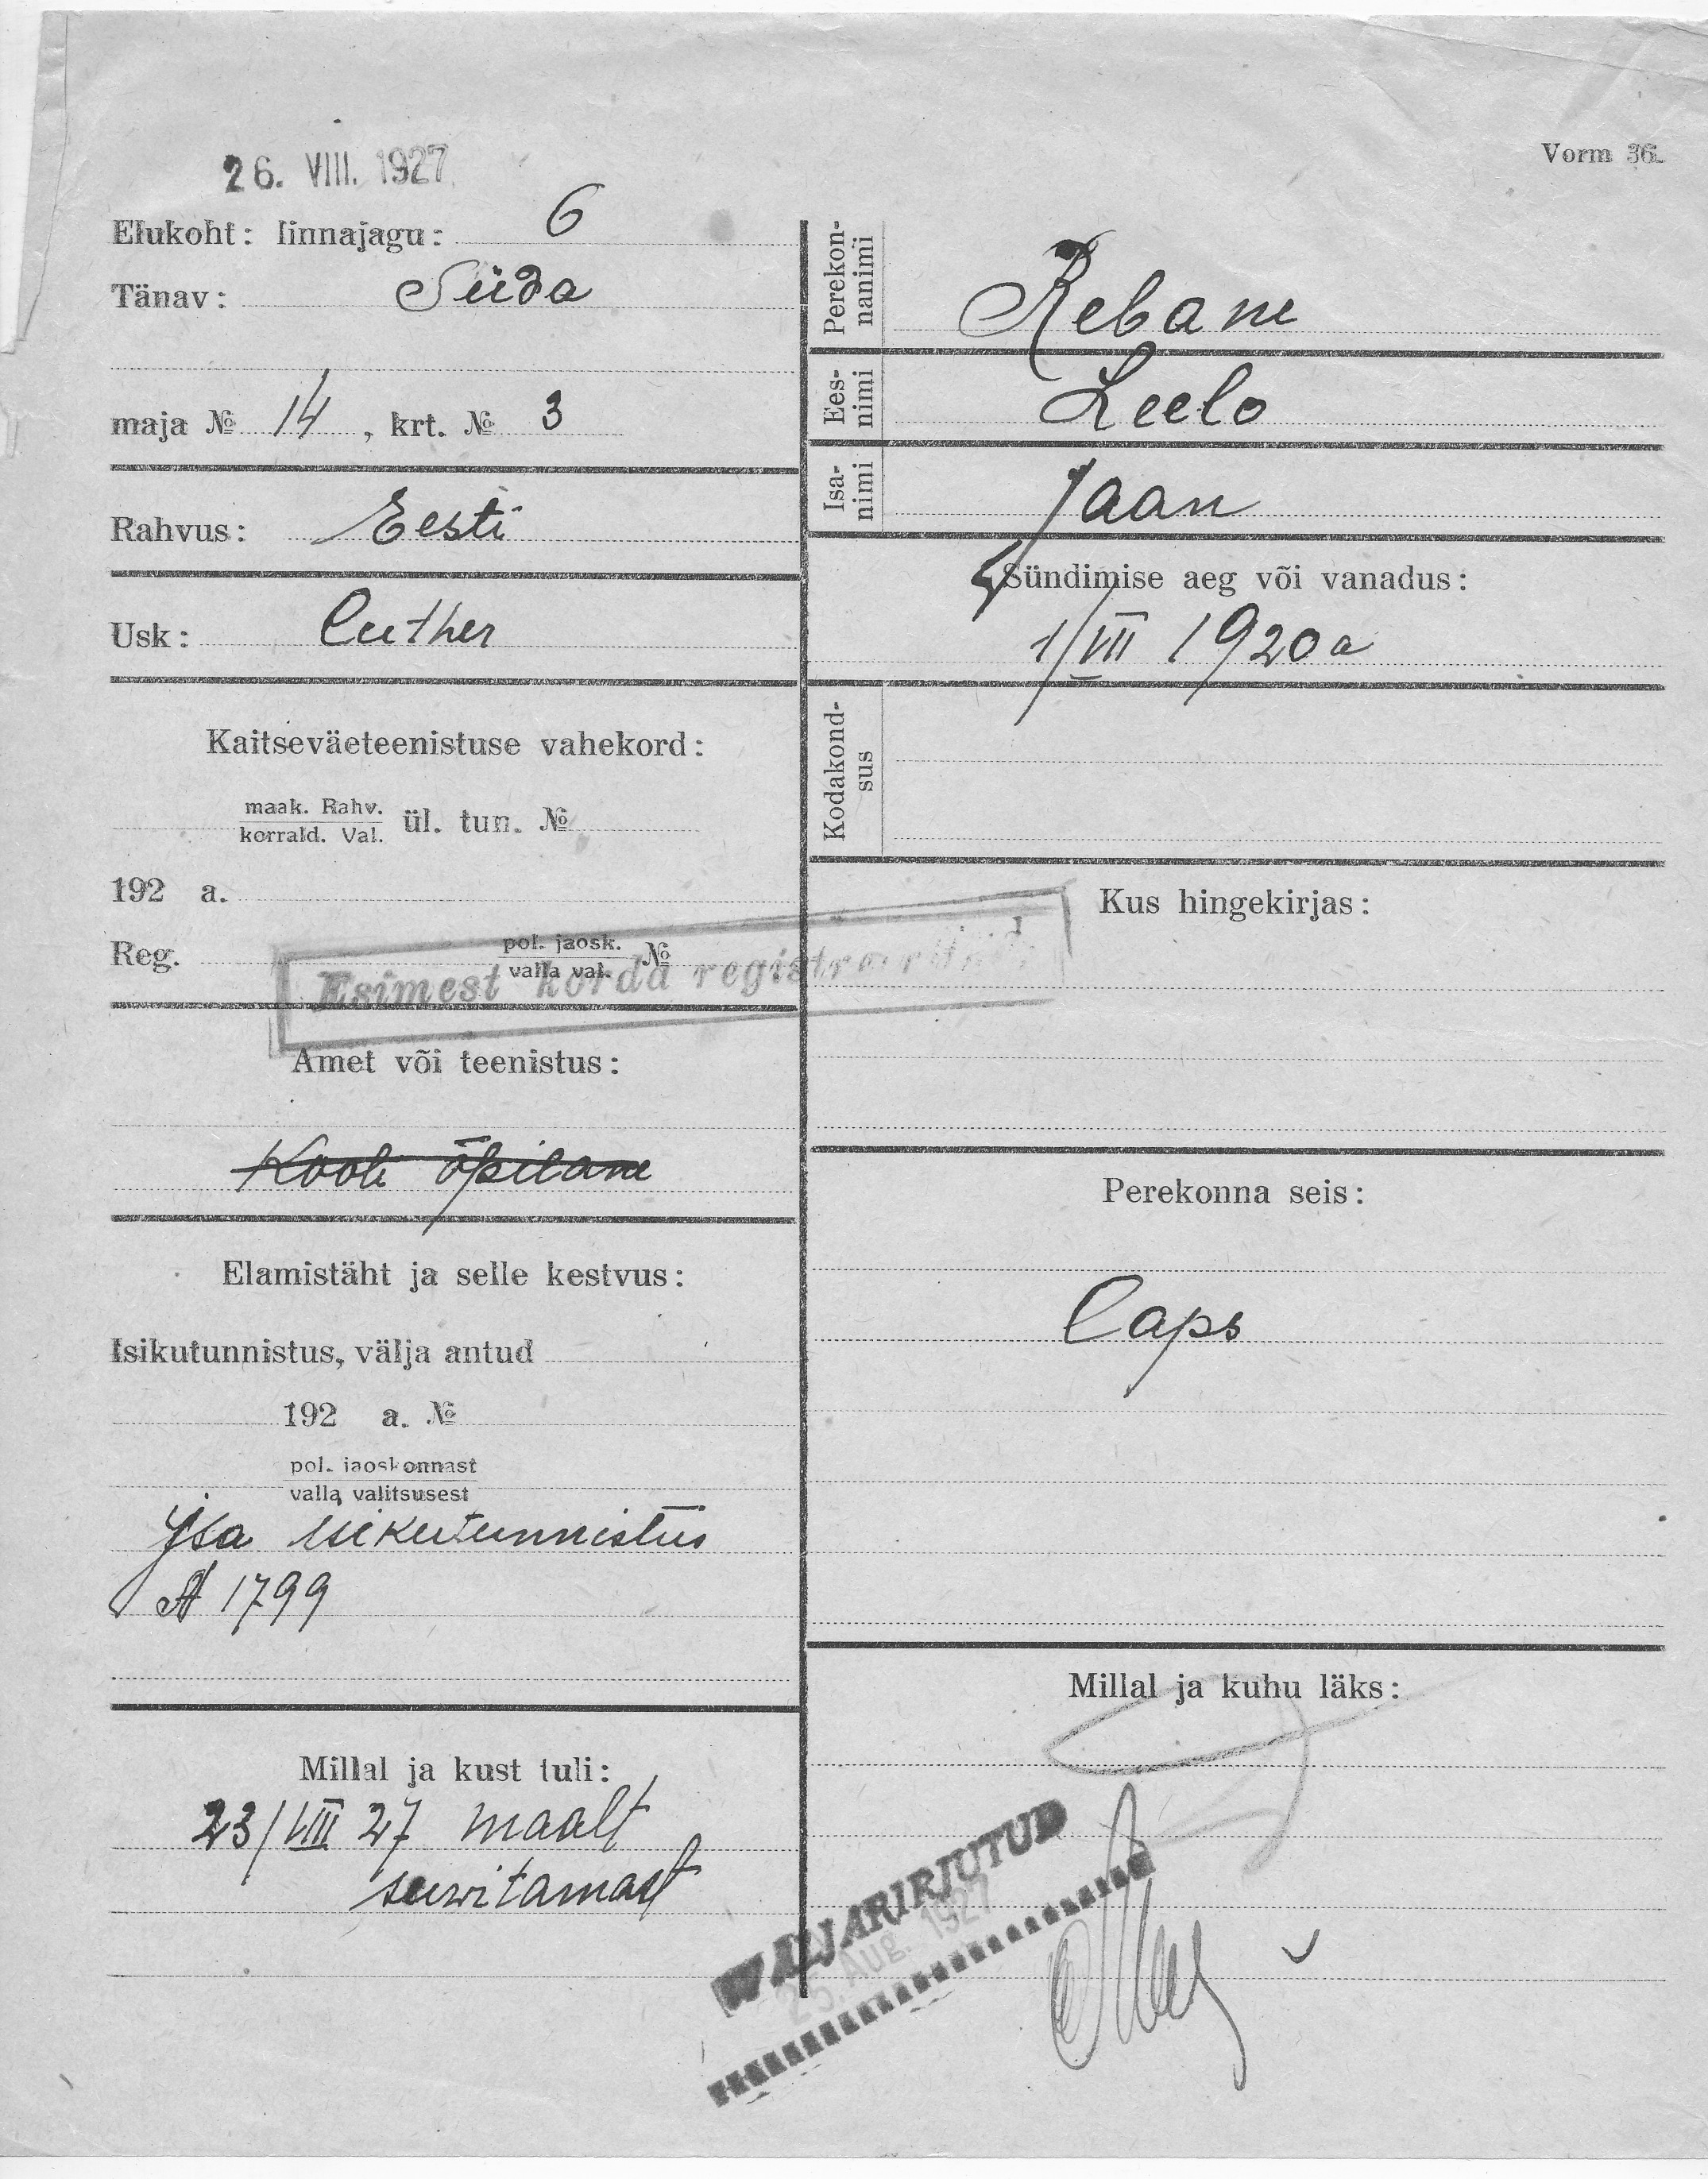 Vorm 36.
26. VIII. 1927
Elukoht: linnajagu: 6
Tänav: Süda
maja № 14, krt. № 3
Rahvus: Eesti
Usk: Luther
Kaitseväeteenistuse vahekord:
maak. Rahv.
korrald. Val. ül. tun. №
192 a.
Reg. pol. jaosk. №
valla val.
Esimest korda registreeritud.
Amet või teenistus:
Kooli õpilane
Elamistäht ja selle kestvus:
Isikutunnistus, välja antud
192 a. №
pol. jaoskonnast
valla valitsusest
Isa isikutunnistus
A 1799
Millal ja kust tuli:
23/VIII 27 maalt
suwitamast
Perekon-
nanimi Rebane
Ees-
nimi Leelo
Isa-
nimi Jaan
Sündimise aeg või vanadus:
1/VII 1920 a
Kodakond-
sus
Kus hingekirjas:
Perekonna seis:
Laps
Millal ja kuhu läks:
WÄLJAKIRJUTUD
25. Aug. 1927